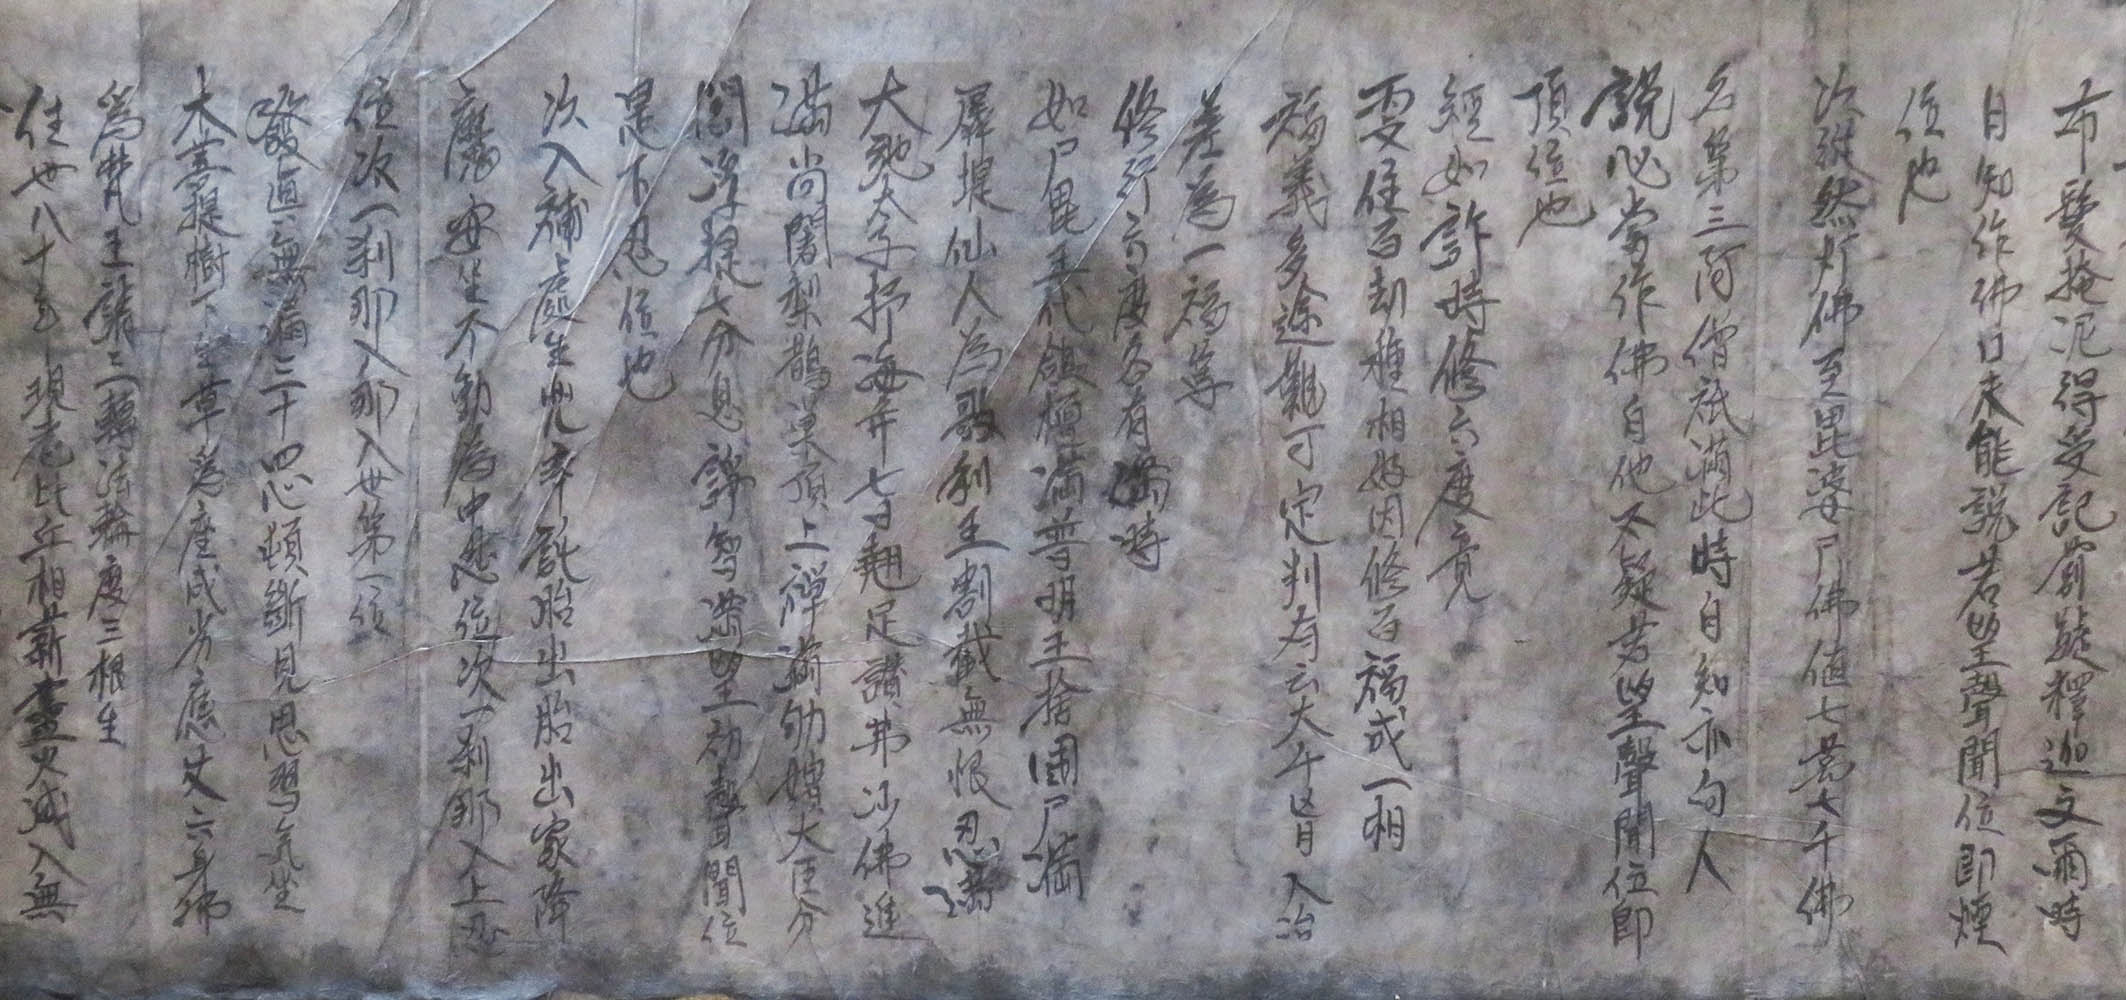 布髮掩泥得受記莂號釋迦文爾時
自知作佛口未能說若望聲聞位即煙
位也
次從然灯佛至毘婆尸佛值七萬七千佛
名第三阿僧祇滿此時自知亦向人
說必當作佛自他不疑若望聲聞位即
頂位也
經如許時修六度竟
更住百劫種相好因修百福成一相
福義多途難可定判有云大千盲人治
差為一福等
修行六度各有滿時
如尸毘王代鴿檀滿普明王捨國尸滿
羼提仙人為歌利王割截無恨忍滿
大施太子抒海并七日翹足讚弗沙佛進
滿尚闍梨鵲巢頂上禪滿劬嬪大臣分
閻浮提七分息諍智滿望初聲聞位
是下忍位也
次入補處生兜率託胎出胎出家降
魔安坐不動為中忍位次一剎那入上忍
位次一剎那入那入世第一位
發真無漏三十四心頓斷見思習氣坐
木菩提樹下生草為座成劣應丈六身佛
為梵王請三轉法輪度三根生
住世八十年現老比丘相薪盡火滅入無